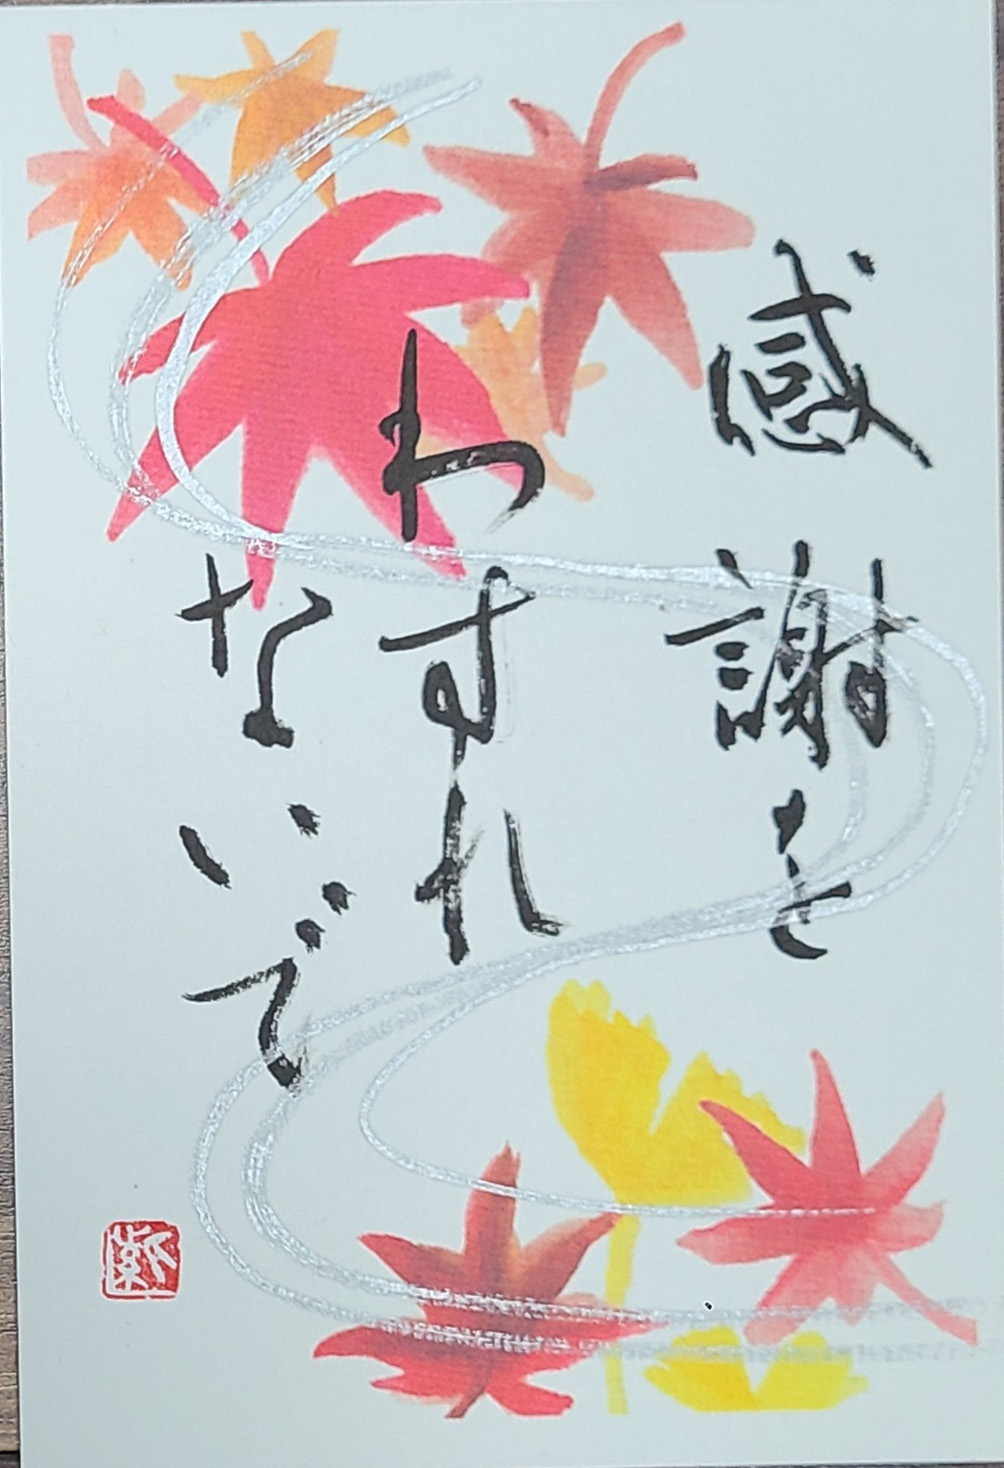 感謝を
わすれ
ないで